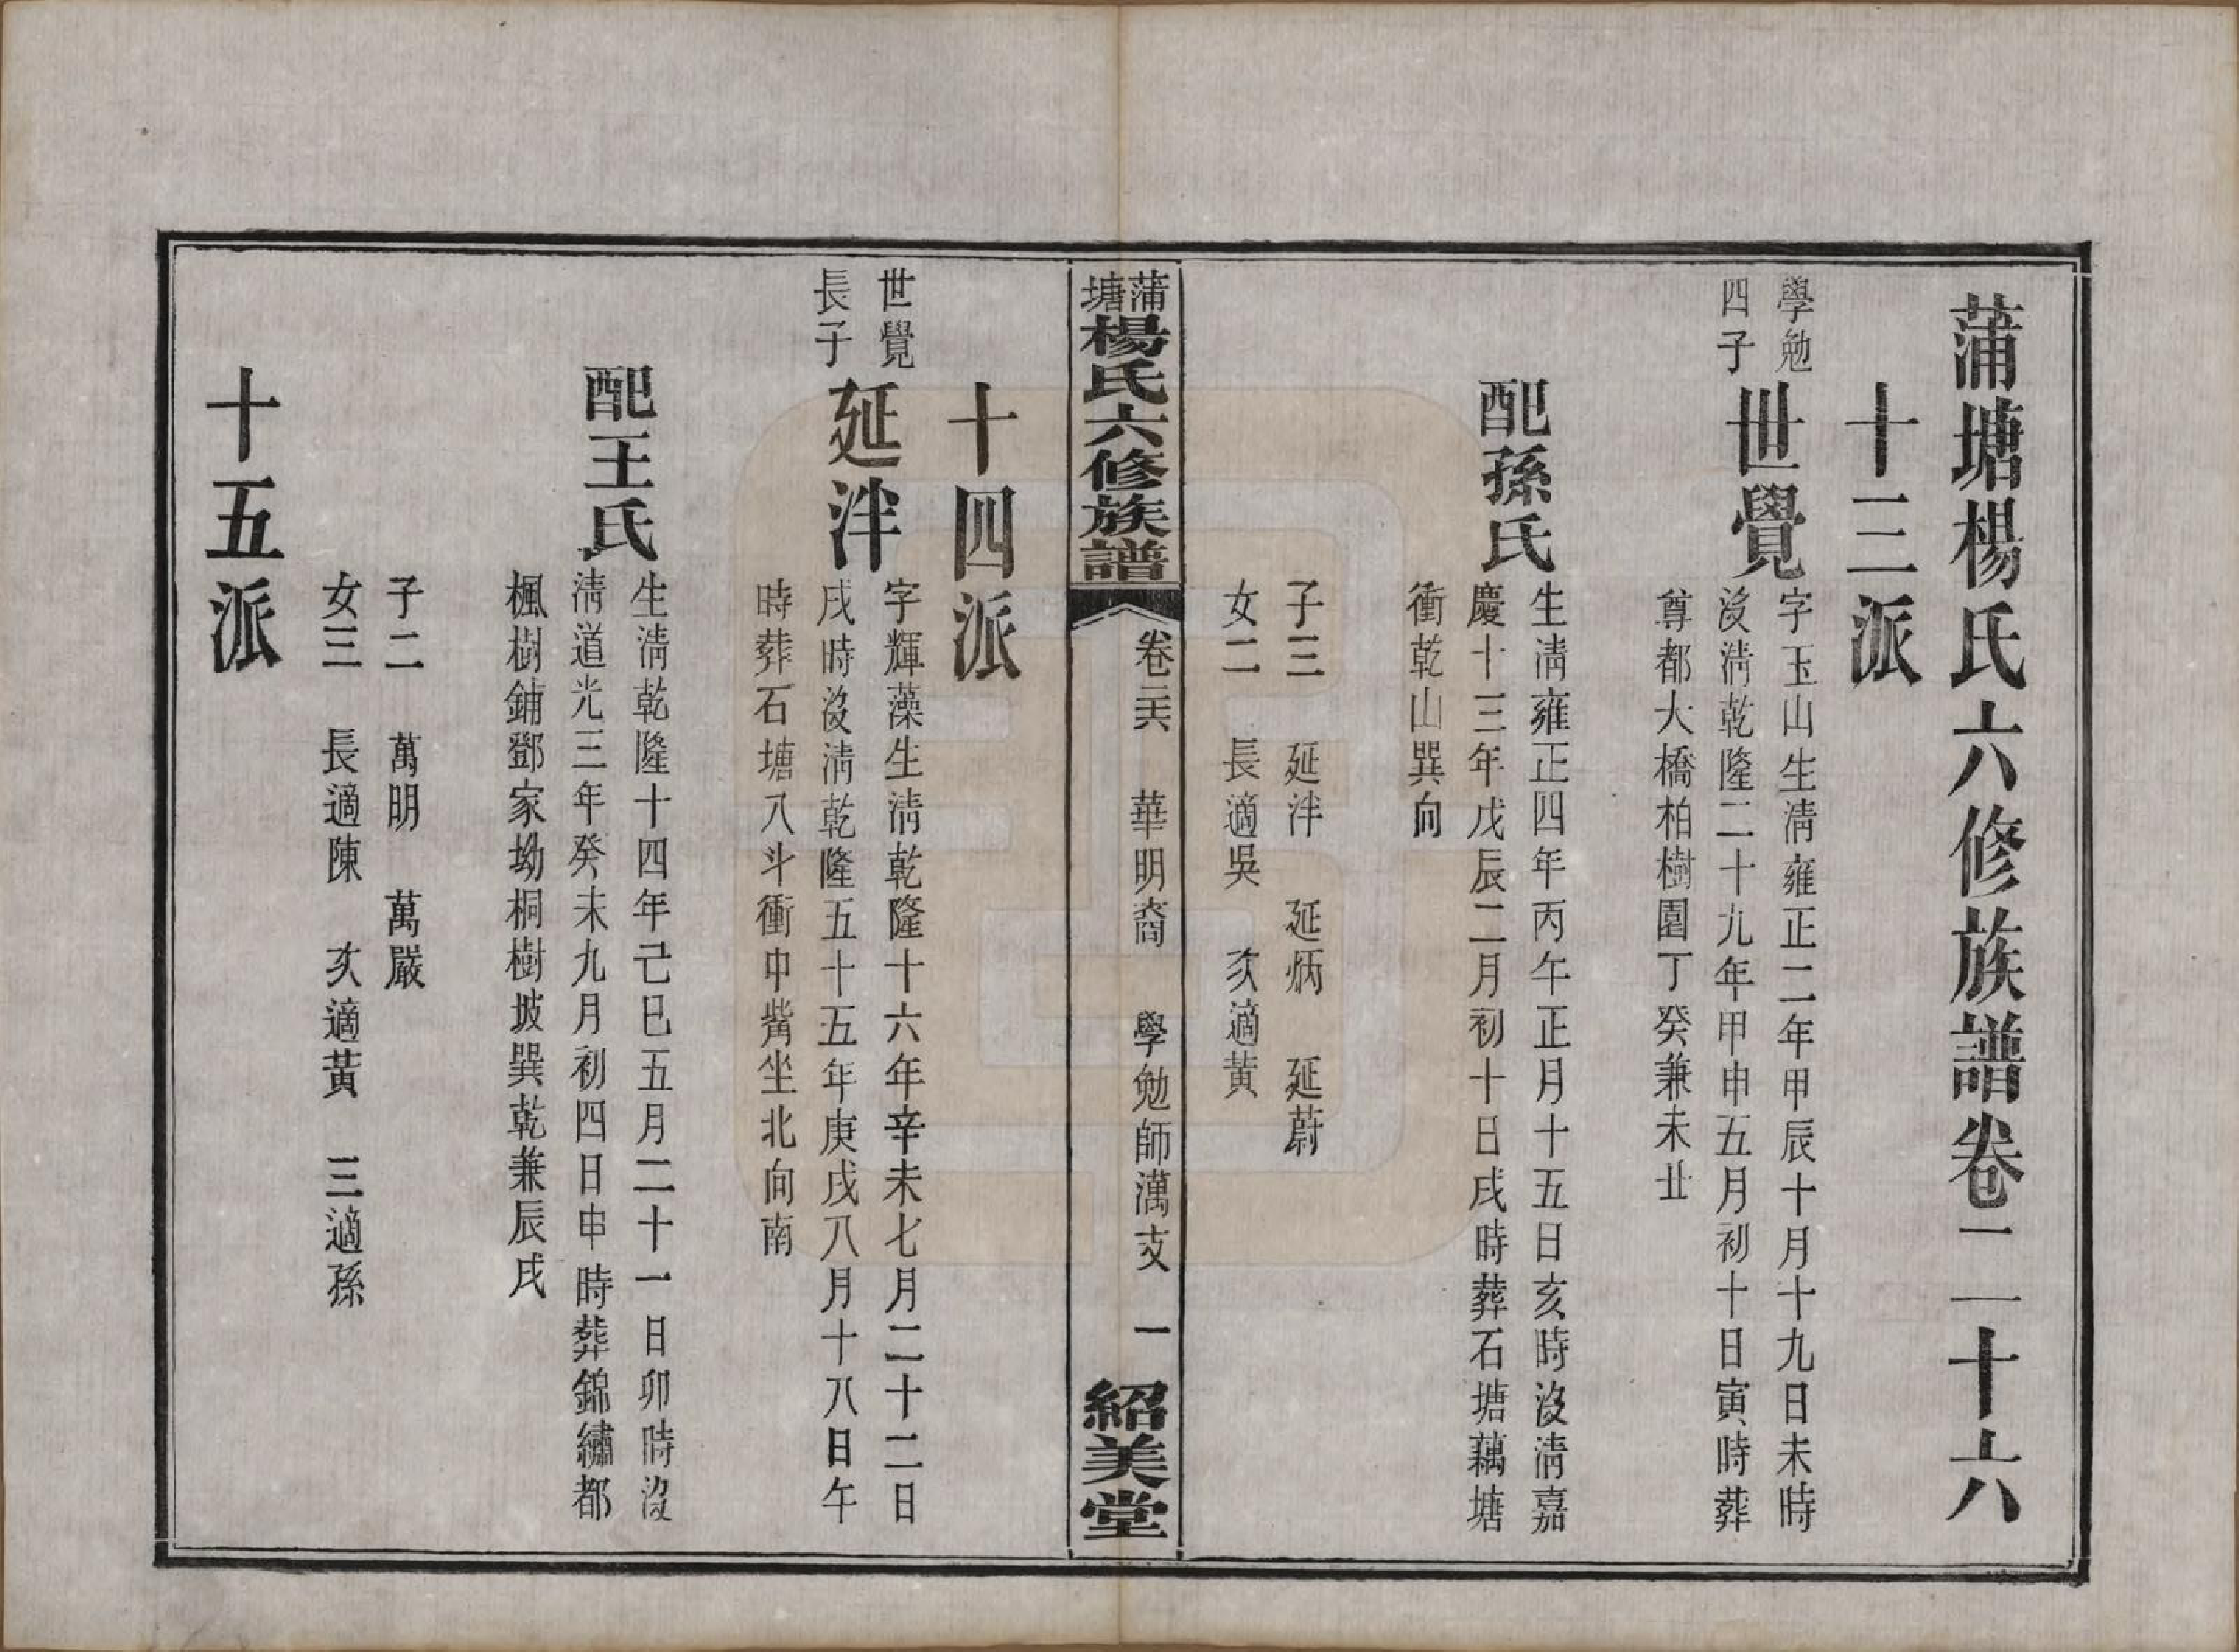 蒲塘楊氏六修族譜卷二十六
十三派
學勉
四子
世覺
字玉山生淸雍正二年甲辰十月十九日未時
沒淸乾隆二十九年甲申五月初十日寅時葬
尊都大橋柏樹園丁癸兼未丑
配孫氏
生淸雍正四年丙午正月十五日亥時沒淸嘉
慶十三年戊辰二月初十日戌時葬石塘藕塘
衝乾山巽向
子三 延泮 延炳 延蔚
女二 長適吳 次適黃
蒲塘楊氏六修族譜
卷二六 華明裔 學勉師濿支 一
紹美堂
十四派
世覺
長子
延泮
字輝藻生淸乾隆十六年辛未七月二十二日
戌時沒淸乾隆五十五年庚戌八月十八日午
時葬石塘八斗衝中觜坐北向南
配王氏
生淸乾隆十四年己巳五月二十一日卯時沒
淸道光三年癸未九月初四日申時葬錦繡都
楓樹鋪鄧家坳桐樹坡巽乾兼辰戌
子二 萬明 萬嚴
女三 長適陳 次適黃 三適孫
十五派